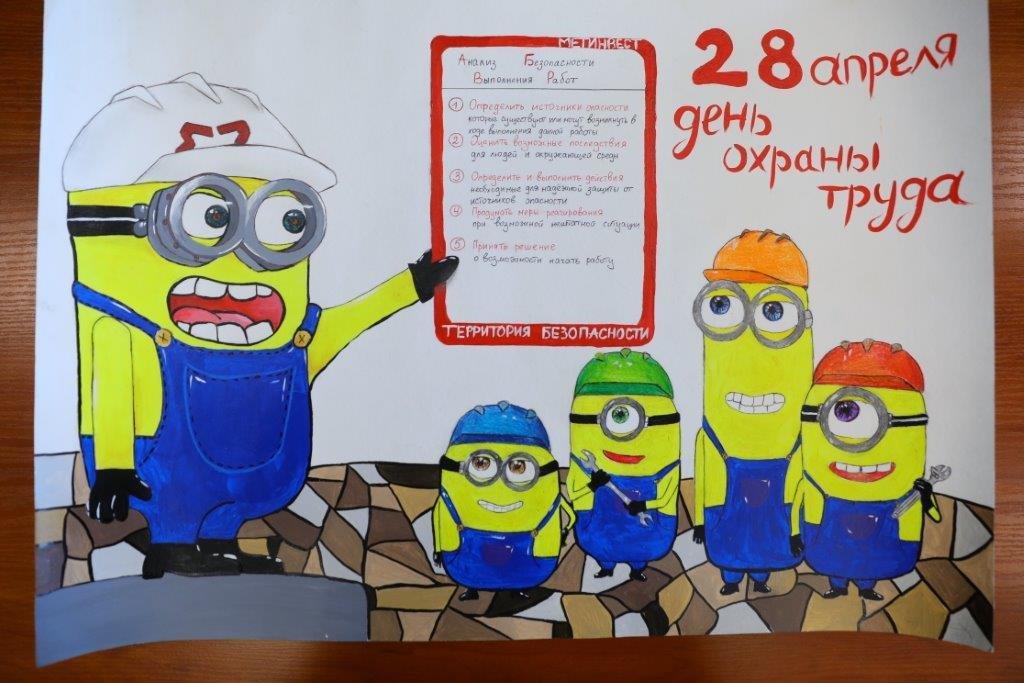 МЕТИНВЕСТ
Анализ Безопасности
Выполнения Работ
1 Определить источники опасности
которые существуют или могут возникнуть в
ходе выполнения данной работы
2 Оценить возможные последствия
для людей и окружающей среды
3 Определить и выполнить действия
необходимые для надёжной защиты от
источников опасности
4 Продумать меры реагирования
при возможной нештатной ситуации
5 Принять решение
о возможности начать работу
ТЕРРИТОРИЯ БЕЗОПАСНОСТИ
28 апреля
день
охраны
труда